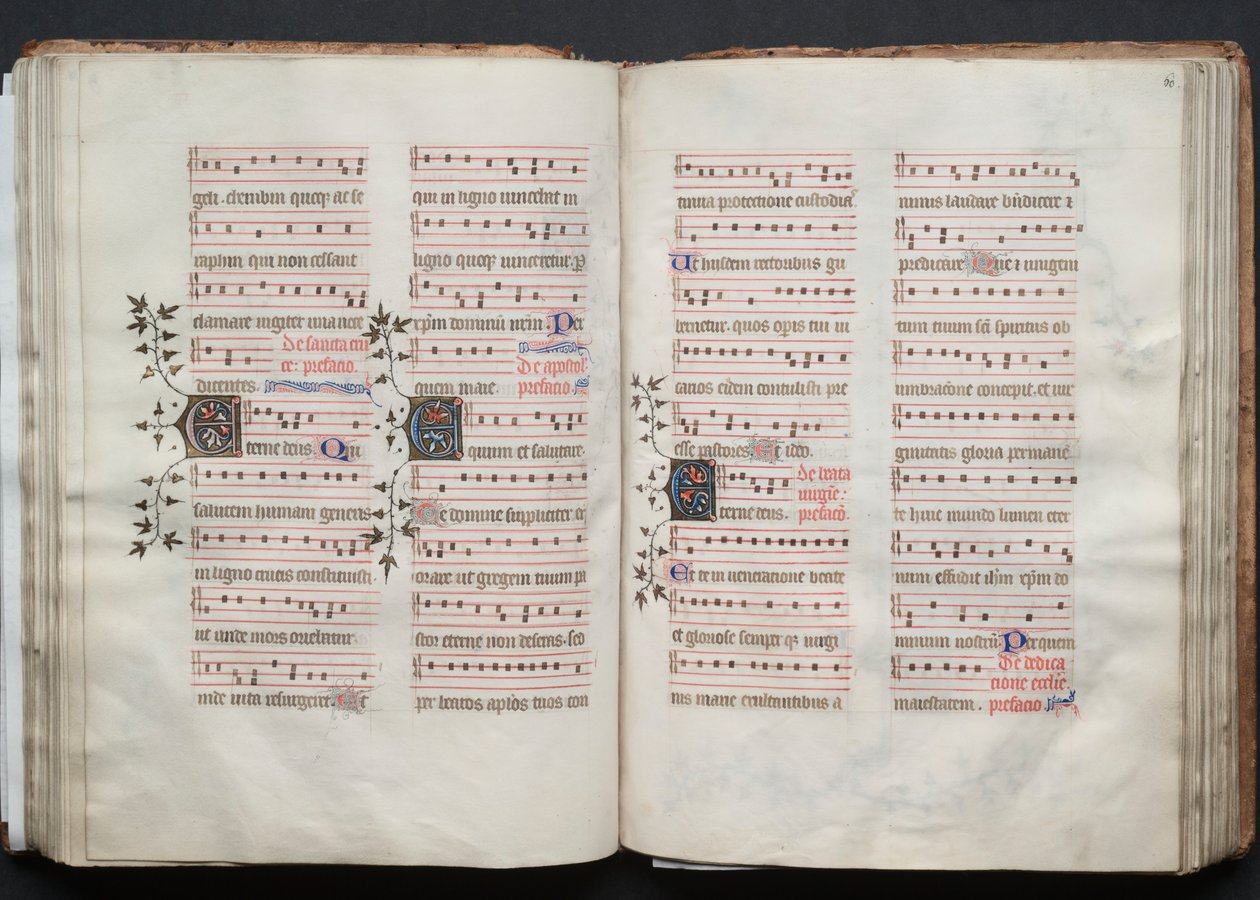 geli. cherubin quoqꝫ ac se
raphin qui non cessant
clamare iugiter una uoce
De sancta cru
ce: prefacio.
dicentes.
Eterne deus Qui
salutem humani generis
in ligno crucis constituisti.
ut unde mors oriebatur
inde uita resurgeret Et
qui in ligno uincebat in
ligno quoqꝫ uinceretur. ꝑ
xp̄m dominū nr̄m Per
De apostol
quem maie. prefacio.
Equum et salutare.
Te domine suppliciter ex
orare ut gregem tuum pa
stor eterne non deseras. sed
per beatos aplōs tuos con
60.
tinua protectione custodias
Ut hiisdem rectoribus gu
bernetur. quos opis tui ui
carios eidem contulisti pre
esse pastores Et ideo.
De beata
uirgīe.
Eterne deus. prefacō.
Et te in ueneratione beate
et gloriose semper qꝫ uirgi
nis marie exultantibus a
nimis laudare bn̄dicere ⁊
predicare Que ⁊ unigeni
tum tuum sc̄i spiritus ob
umbracōne concepit. et uir
ginitatis gloria permanē
te huic mundo lumen eter
num effudit ih̄m xp̄m do
minum nostrū Per quem
De dedica
cione ecclīe.
maiestatem. prefacio